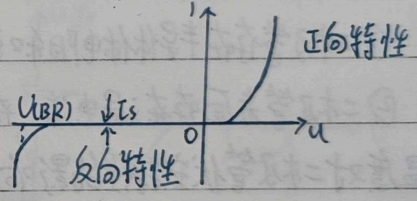 i
正向特性
U(BR)
Is
O
u
反向特性